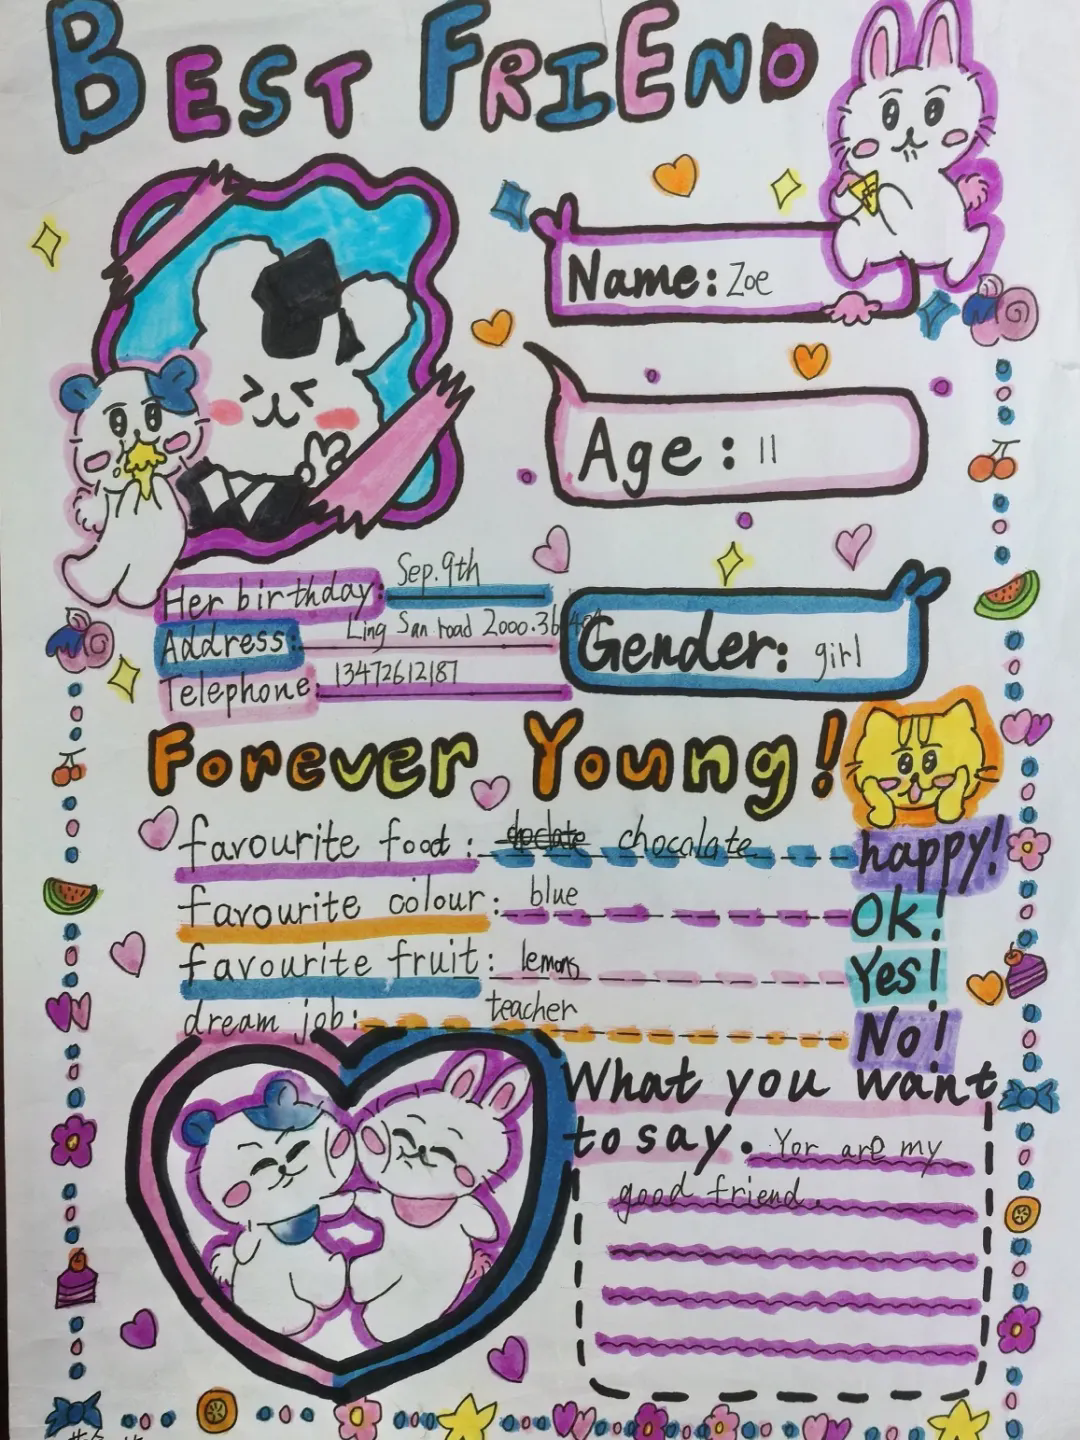 BEST FRIEND
Name: Zoe
Age: 11
Her birthday: Sep. 9th
Address: Ling San road 2000.36
Gender: girl
Telephone: 13472612187
Forever Young!
favourite food: chocalate happy!
favourite colour: blue Ok!
favourite fruit: lemons Yes!
dream job: teacher No!
What you want
to say. Yor are my
good friend.